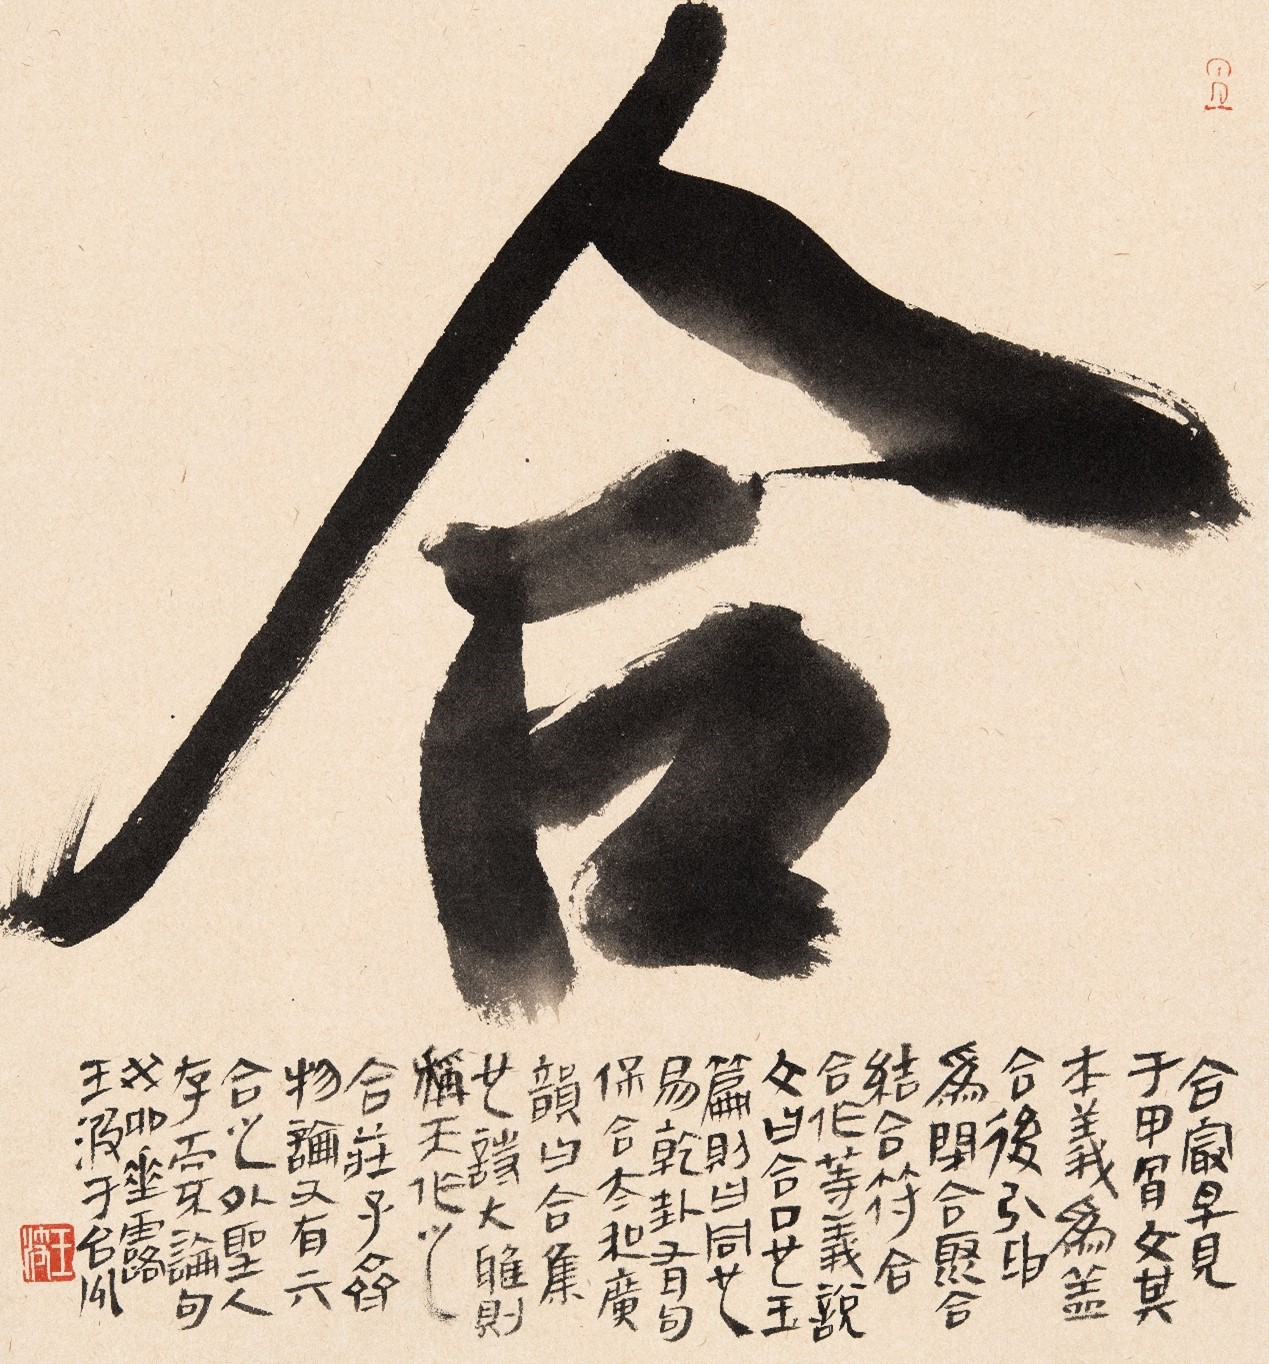 合
合冣早見
于甲骨文其
本義爲盖
合後引申
爲閉合聚合
結合符合
合作等義說
文曰合口也玉
篇則曰同也
易乾卦有句
保合太和廣
韻曰合集
也詩大雅則
稱天作之
合莊子齊
物論又有六
合之外聖人
存而不論句
癸卯露
王波于台州
王波